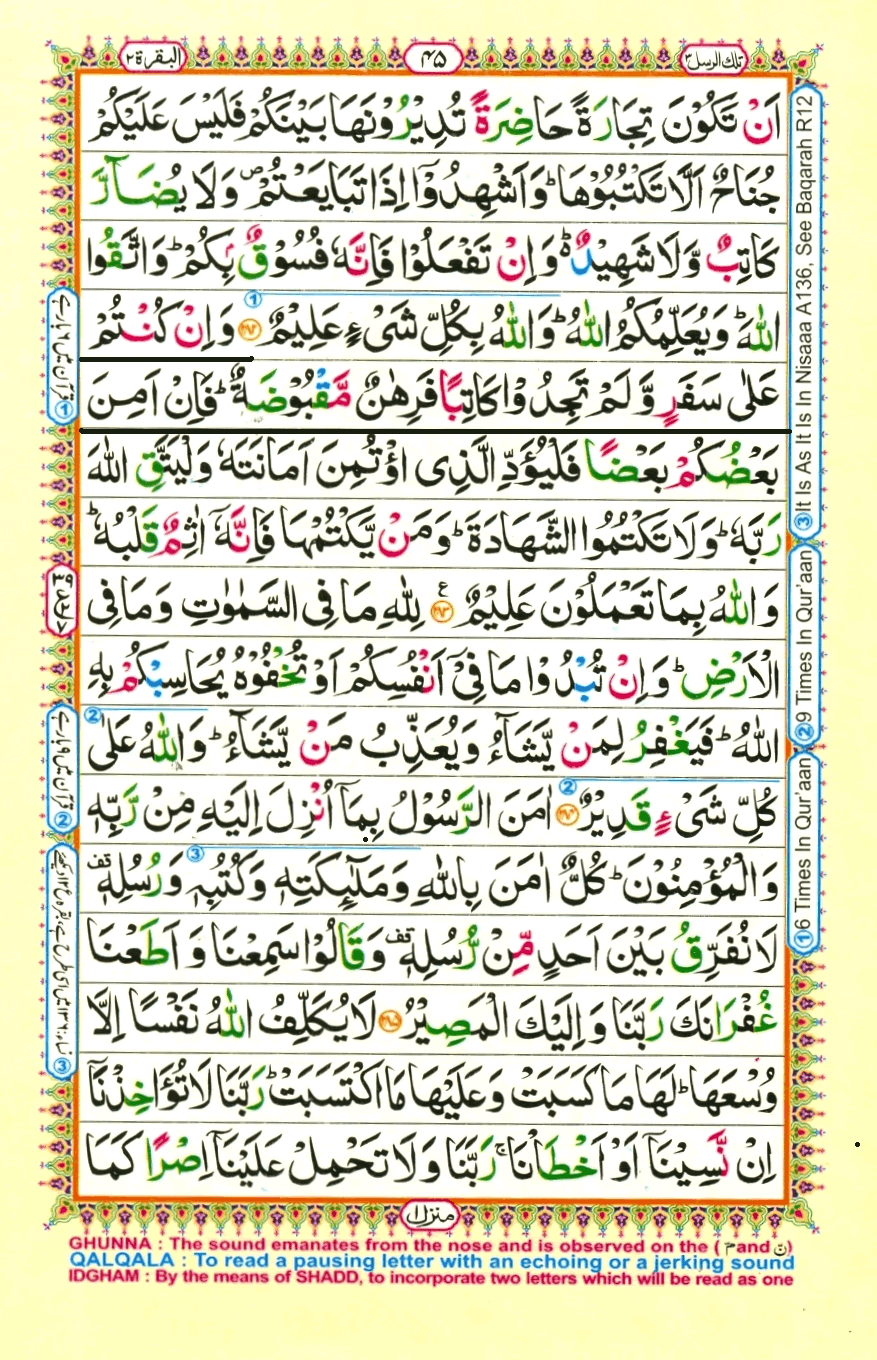 البقرة ٢
٤٥
تلك الرسل ٣
اَنْ تَكُوْنَ تِجَارَةً حَاضِرَةً تُدِيْرُوْنَهَا بَيْنَكُمْ فَلَيْسَ عَلَيْكُمْ
جُنَاحٌ اَلَّا تَكْتُبُوْهَا ؕ وَاَشْهِدُوْۤا اِذَا تَبَايَعْتُمْ ۪ وَلَا يُضَآرَّ
كَاتِبٌ وَّلَا شَهِيْدٌ ؕ۬ وَاِنْ تَفْعَلُوْا فَاِنَّهٗ فُسُوْقٌۢ بِكُمْ ؕ وَاتَّقُوا
اللّٰهَ ؕ وَيُعَلِّمُكُمُ اللّٰهُ ؕ وَاللّٰهُ بِكُلِّ شَىْءٍ عَلِيْمٌ ﴿۲۸۲﴾ وَاِنْ كُنْتُمْ
عَلٰى سَفَرٍ وَّلَمْ تَجِدُوْا كَاتِبًا فَرِهٰنٌ مَّقْبُوْضَةٌ ؕ فَاِنْ اَمِنَ
بَعْضُكُمْ بَعْضًا فَلْيُؤَدِّ الَّذِى اؤْتُمِنَ اَمَانَتَهٗ وَلْيَتَّقِ اللّٰهَ
رَبَّهٗ ؕ وَلَا تَكْتُمُوا الشَّهَادَةَ ؕ وَمَنْ يَّكْتُمْهَا فَاِنَّهٗۤ اٰثِمٌ قَلْبُهٗ ؕ
وَاللّٰهُ بِمَا تَعْمَلُوْنَ عَلِيْمٌ ﴿۲۸۳﴾ ع لِلّٰهِ مَا فِى السَّمٰوٰتِ وَمَا فِى
الْاَرْضِ ؕ وَاِنْ تُبْدُوْا مَا فِىْۤ اَنْفُسِكُمْ اَوْ تُخْفُوْهُ يُحَاسِبْكُمْ بِهِ
اللّٰهُ ؕ فَيَغْفِرُ لِمَنْ يَّشَآءُ وَيُعَذِّبُ مَنْ يَّشَآءُ ؕ وَاللّٰهُ عَلٰى
كُلِّ شَىْءٍ قَدِيْرٌ ﴿۲۸۴﴾ اٰمَنَ الرَّسُوْلُ بِمَاۤ اُنْزِلَ اِلَيْهِ مِنْ رَّبِّهٖ
وَالْمُؤْمِنُوْنَ ؕ كُلٌّ اٰمَنَ بِاللّٰهِ وَمَلٰٓئِكَتِهٖ وَكُتُبِهٖ وَرُسُلِهٖ قف
لَا نُفَرِّقُ بَيْنَ اَحَدٍ مِّنْ رُّسُلِهٖ قف وَقَالُوْا سَمِعْنَا وَاَطَعْنَا
غُفْرَانَكَ رَبَّنَا وَاِلَيْكَ الْمَصِيْرُ ﴿۲۸۵﴾ لَا يُكَلِّفُ اللّٰهُ نَفْسًا اِلَّا
وُسْعَهَا ؕ لَهَا مَا كَسَبَتْ وَعَلَيْهَا مَا اكْتَسَبَتْ ؕ رَبَّنَا لَا تُؤَاخِذْنَاۤ
اِنْ نَّسِيْنَاۤ اَوْ اَخْطَاْنَا ۚ رَبَّنَا وَلَا تَحْمِلْ عَلَيْنَاۤ اِصْرًا كَمَا
منزل ١
① قرآن میں ۶ بار ہے
② قرآن میں ۹ بار ہے
③ It Is As It Is In Nisaaa A136, See Baqarah R12
② 9 Times In Qur'aan
① 6 Times In Qur'aan
GHUNNA : The sound emanates from the nose and is observed on the ( م and ن)
QALQALA : To read a pausing letter with an echoing or a jerking sound
IDGHAM : By the means of SHADD, to incorporate two letters which will be read as one